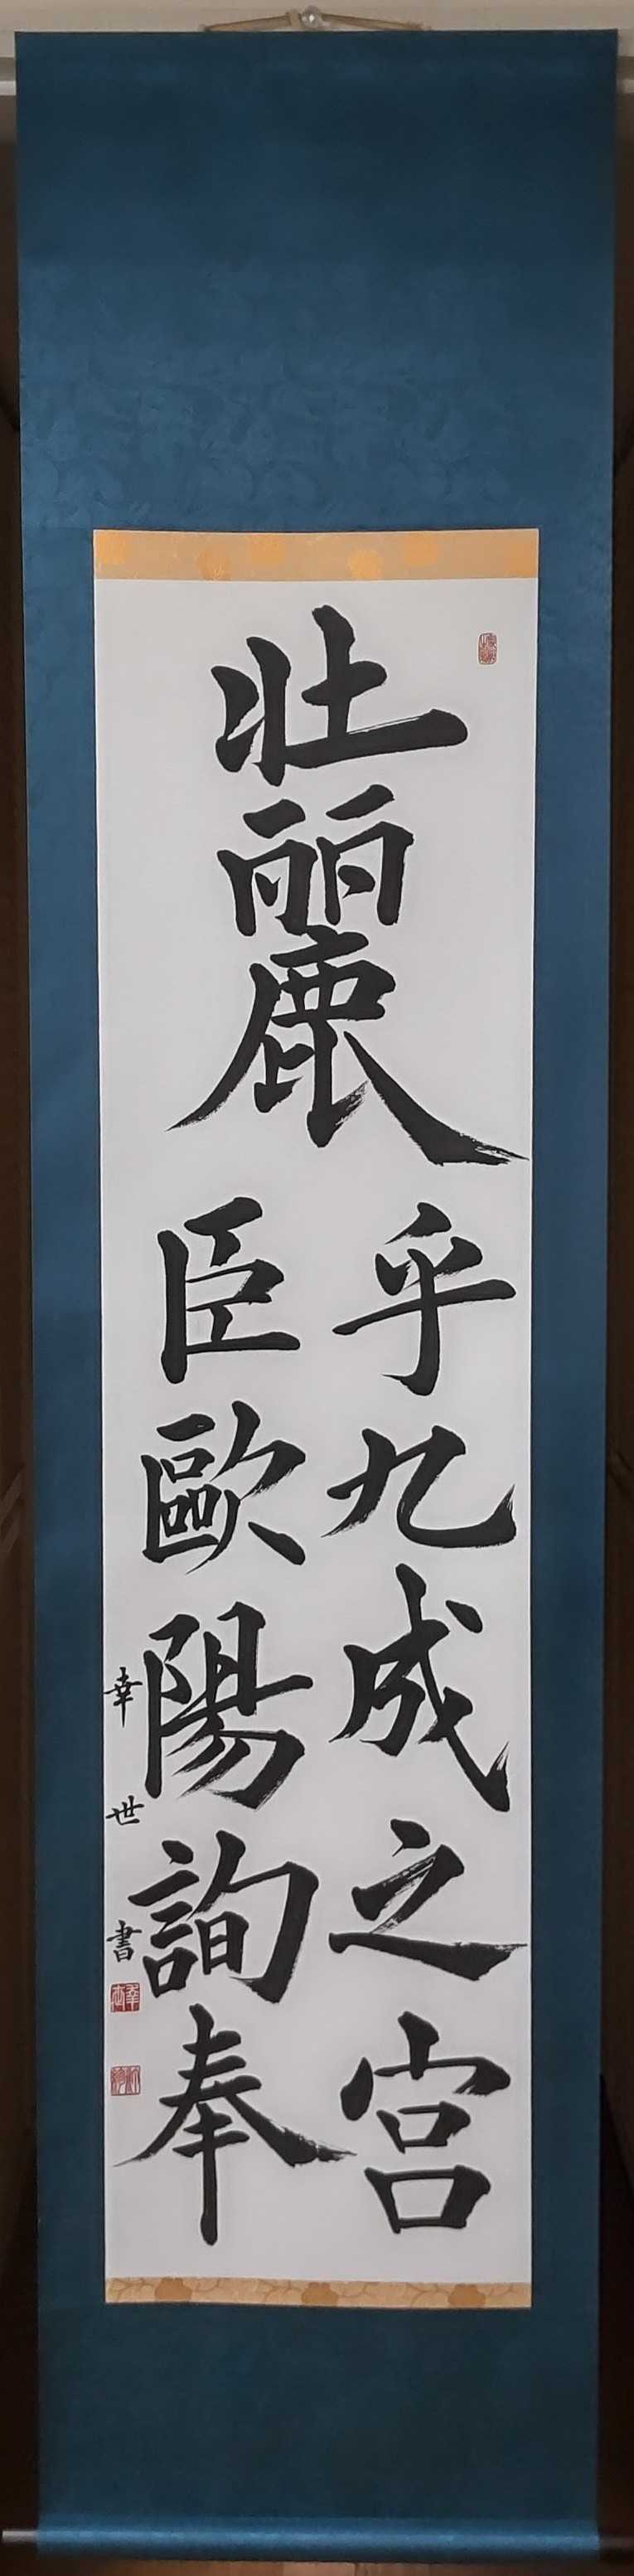 壮麗
乎九成之宮
臣歐陽詢奉
幸世書